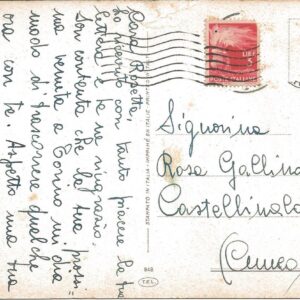 Cara Rosetta,
ho ricevuto con tanto piacere la tua
lettera e te ne ringrazio.
Son contenta che la tua prossi=
ma venuta a Torino mi dia
modo di trascorrere qualche
ora con te. Aspetto una tua
LIRE
3
POSTE ITALIANE
Signorina
Rosa Gallina
Castellinaldo
(Cuneo)
848
TEL.